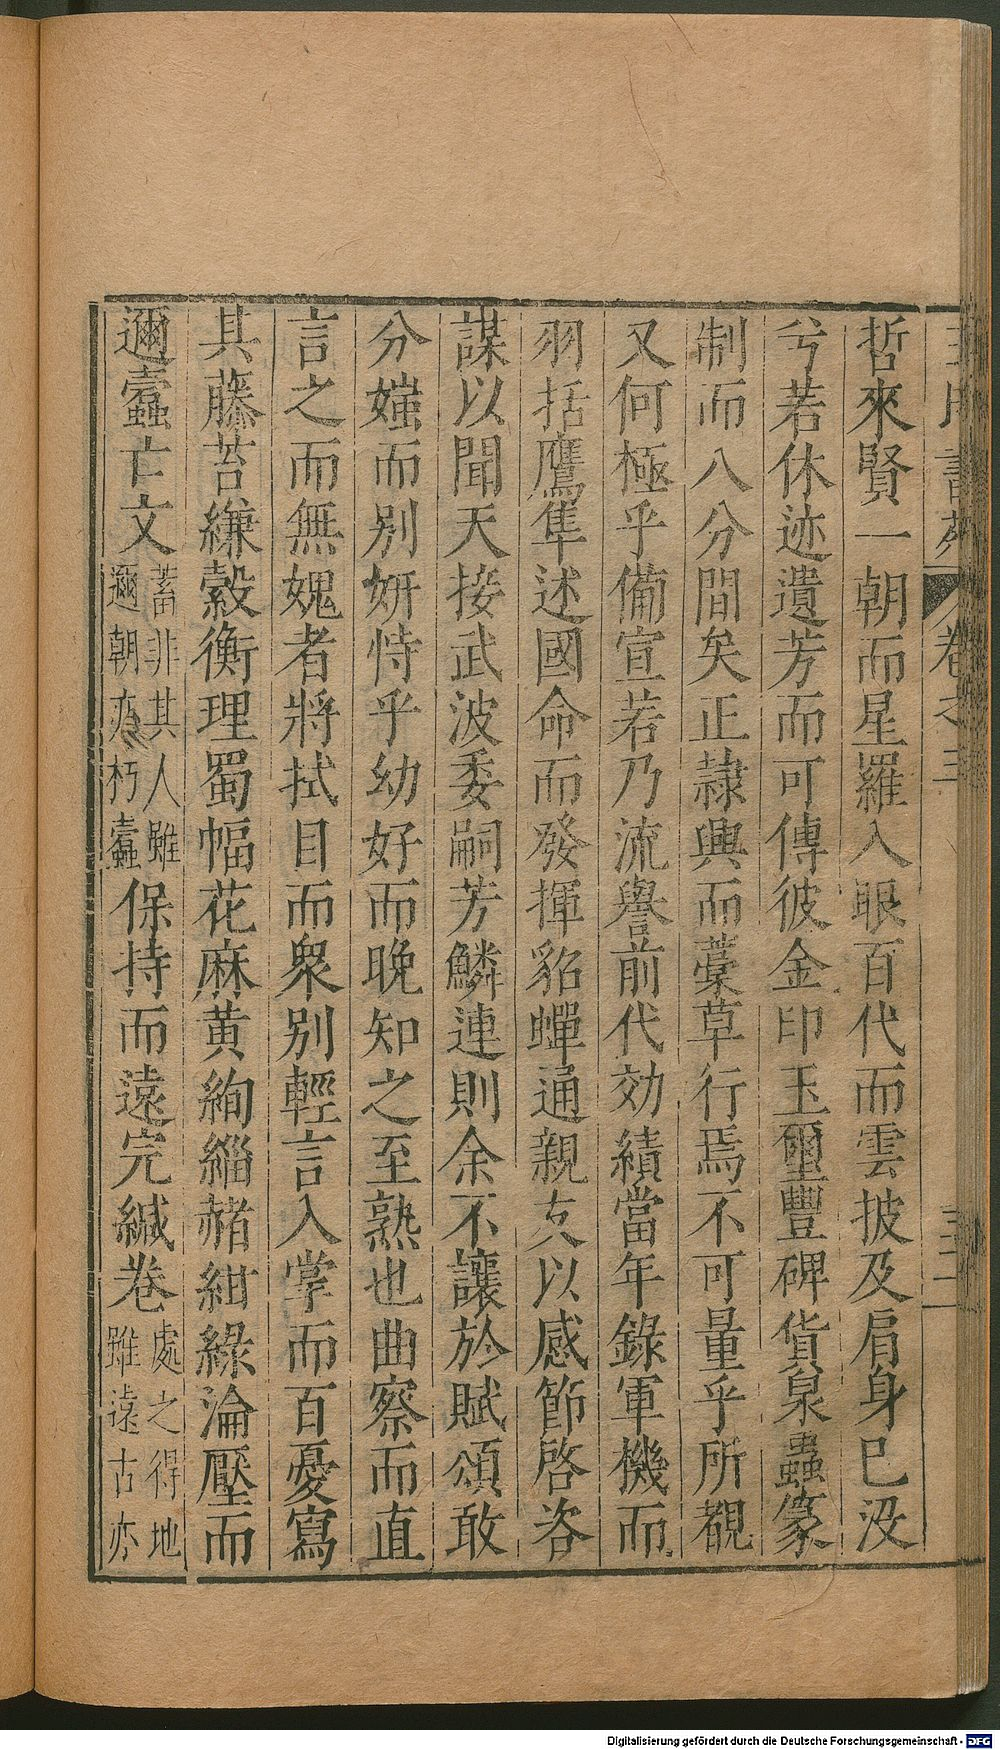 哲來賢一朝而星羅入眼百代而雲披及肩身已没
兮若休迹遺芳而可傳彼金印玉璽豐碑貨泉蟲篆
制而八分間矣正隷興而藁草行焉不可量乎所覩
又何極乎備宣若乃流譽前代効績當年錄軍機而
羽括鷹隼述國命而發揮貂蟬通親友以感節啓咨
謀以聞天接武波委嗣芳鱗連則余不讓於賦頌敢
分媸而别妍恃乎幼好而晚知之至熟也曲察而直
言之而無媿者將拭目而衆别輕言入掌而百憂寫
其藤苔縑縠衡理蜀幅花麻黄絢緇赭紺綠淪壓而
邇蠹亡文蓄非其人雖邇朝亦朽蠹保持而遠完緘卷處之得地雖遠古亦
王氏書苑 卷之三 三一
Digitalisierung gefördert durch die Deutsche Forschungsgemeinschaft - DFG